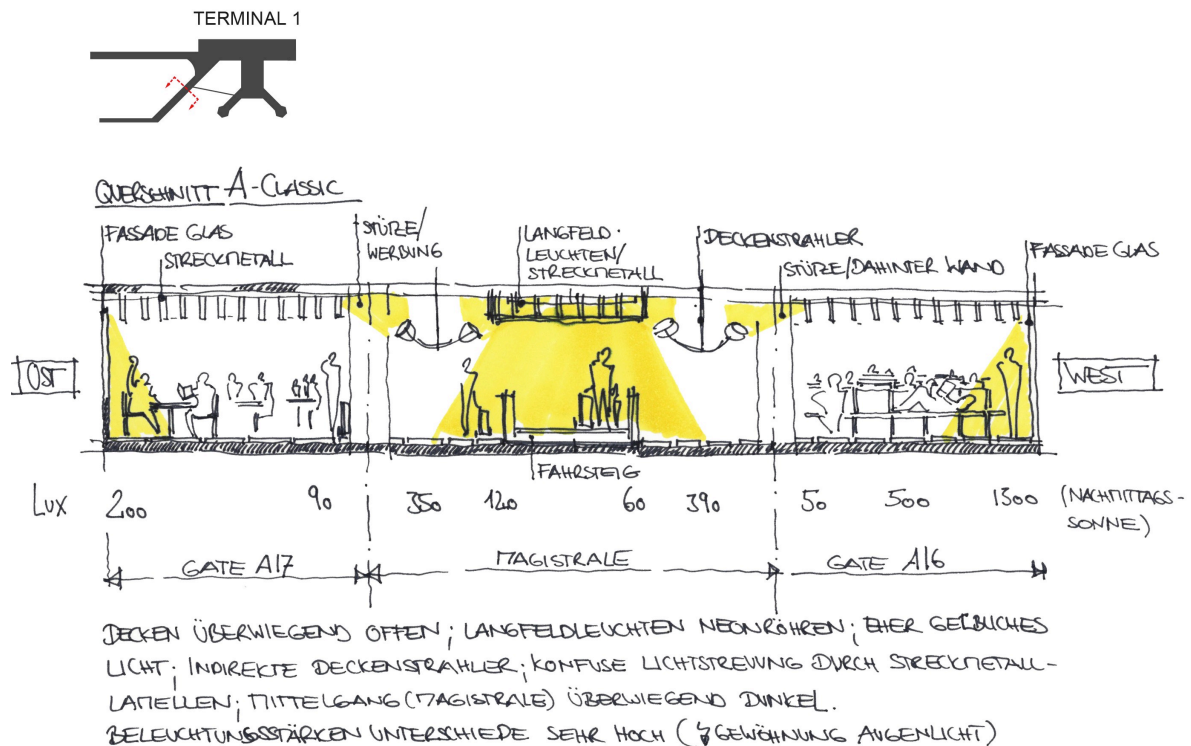 TERMINAL 1
QUERSCHNITT A-CLASSIC
FASSADE GLAS
STRECKMETALL
STÜTZE/
WERBUNG
LANGFELD-
LEUCHTEN/
STRECKMETALL
DECKENSTRAHLER
STÜTZE/DAHINTER WAND
FASSADE GLAS
OST
WEST
FAHRSTEIG
LUX 200 90 350 120 60 390 50 500 1300 (NACHMITTAGS-
SONNE)
GATE A17 MAGISTRALE GATE A16
DECKEN ÜBERWIEGEND OFFEN; LANGFELDLEUCHTEN NEONRÖHREN; EHER GELBLICHES
LICHT; INDIREKTE DECKENSTRAHLER; KONFUSE LICHTSTREUUNG DURCH STRECKMETALL-
LAMELLEN; MITTELGANG (MAGISTRALE) ÜBERWIEGEND DUNKEL.
BELEUCHTUNGSSTÄRKEN UNTERSCHIEDE SEHR HOCH (↯ GEWÖHNUNG AUGENLICHT)